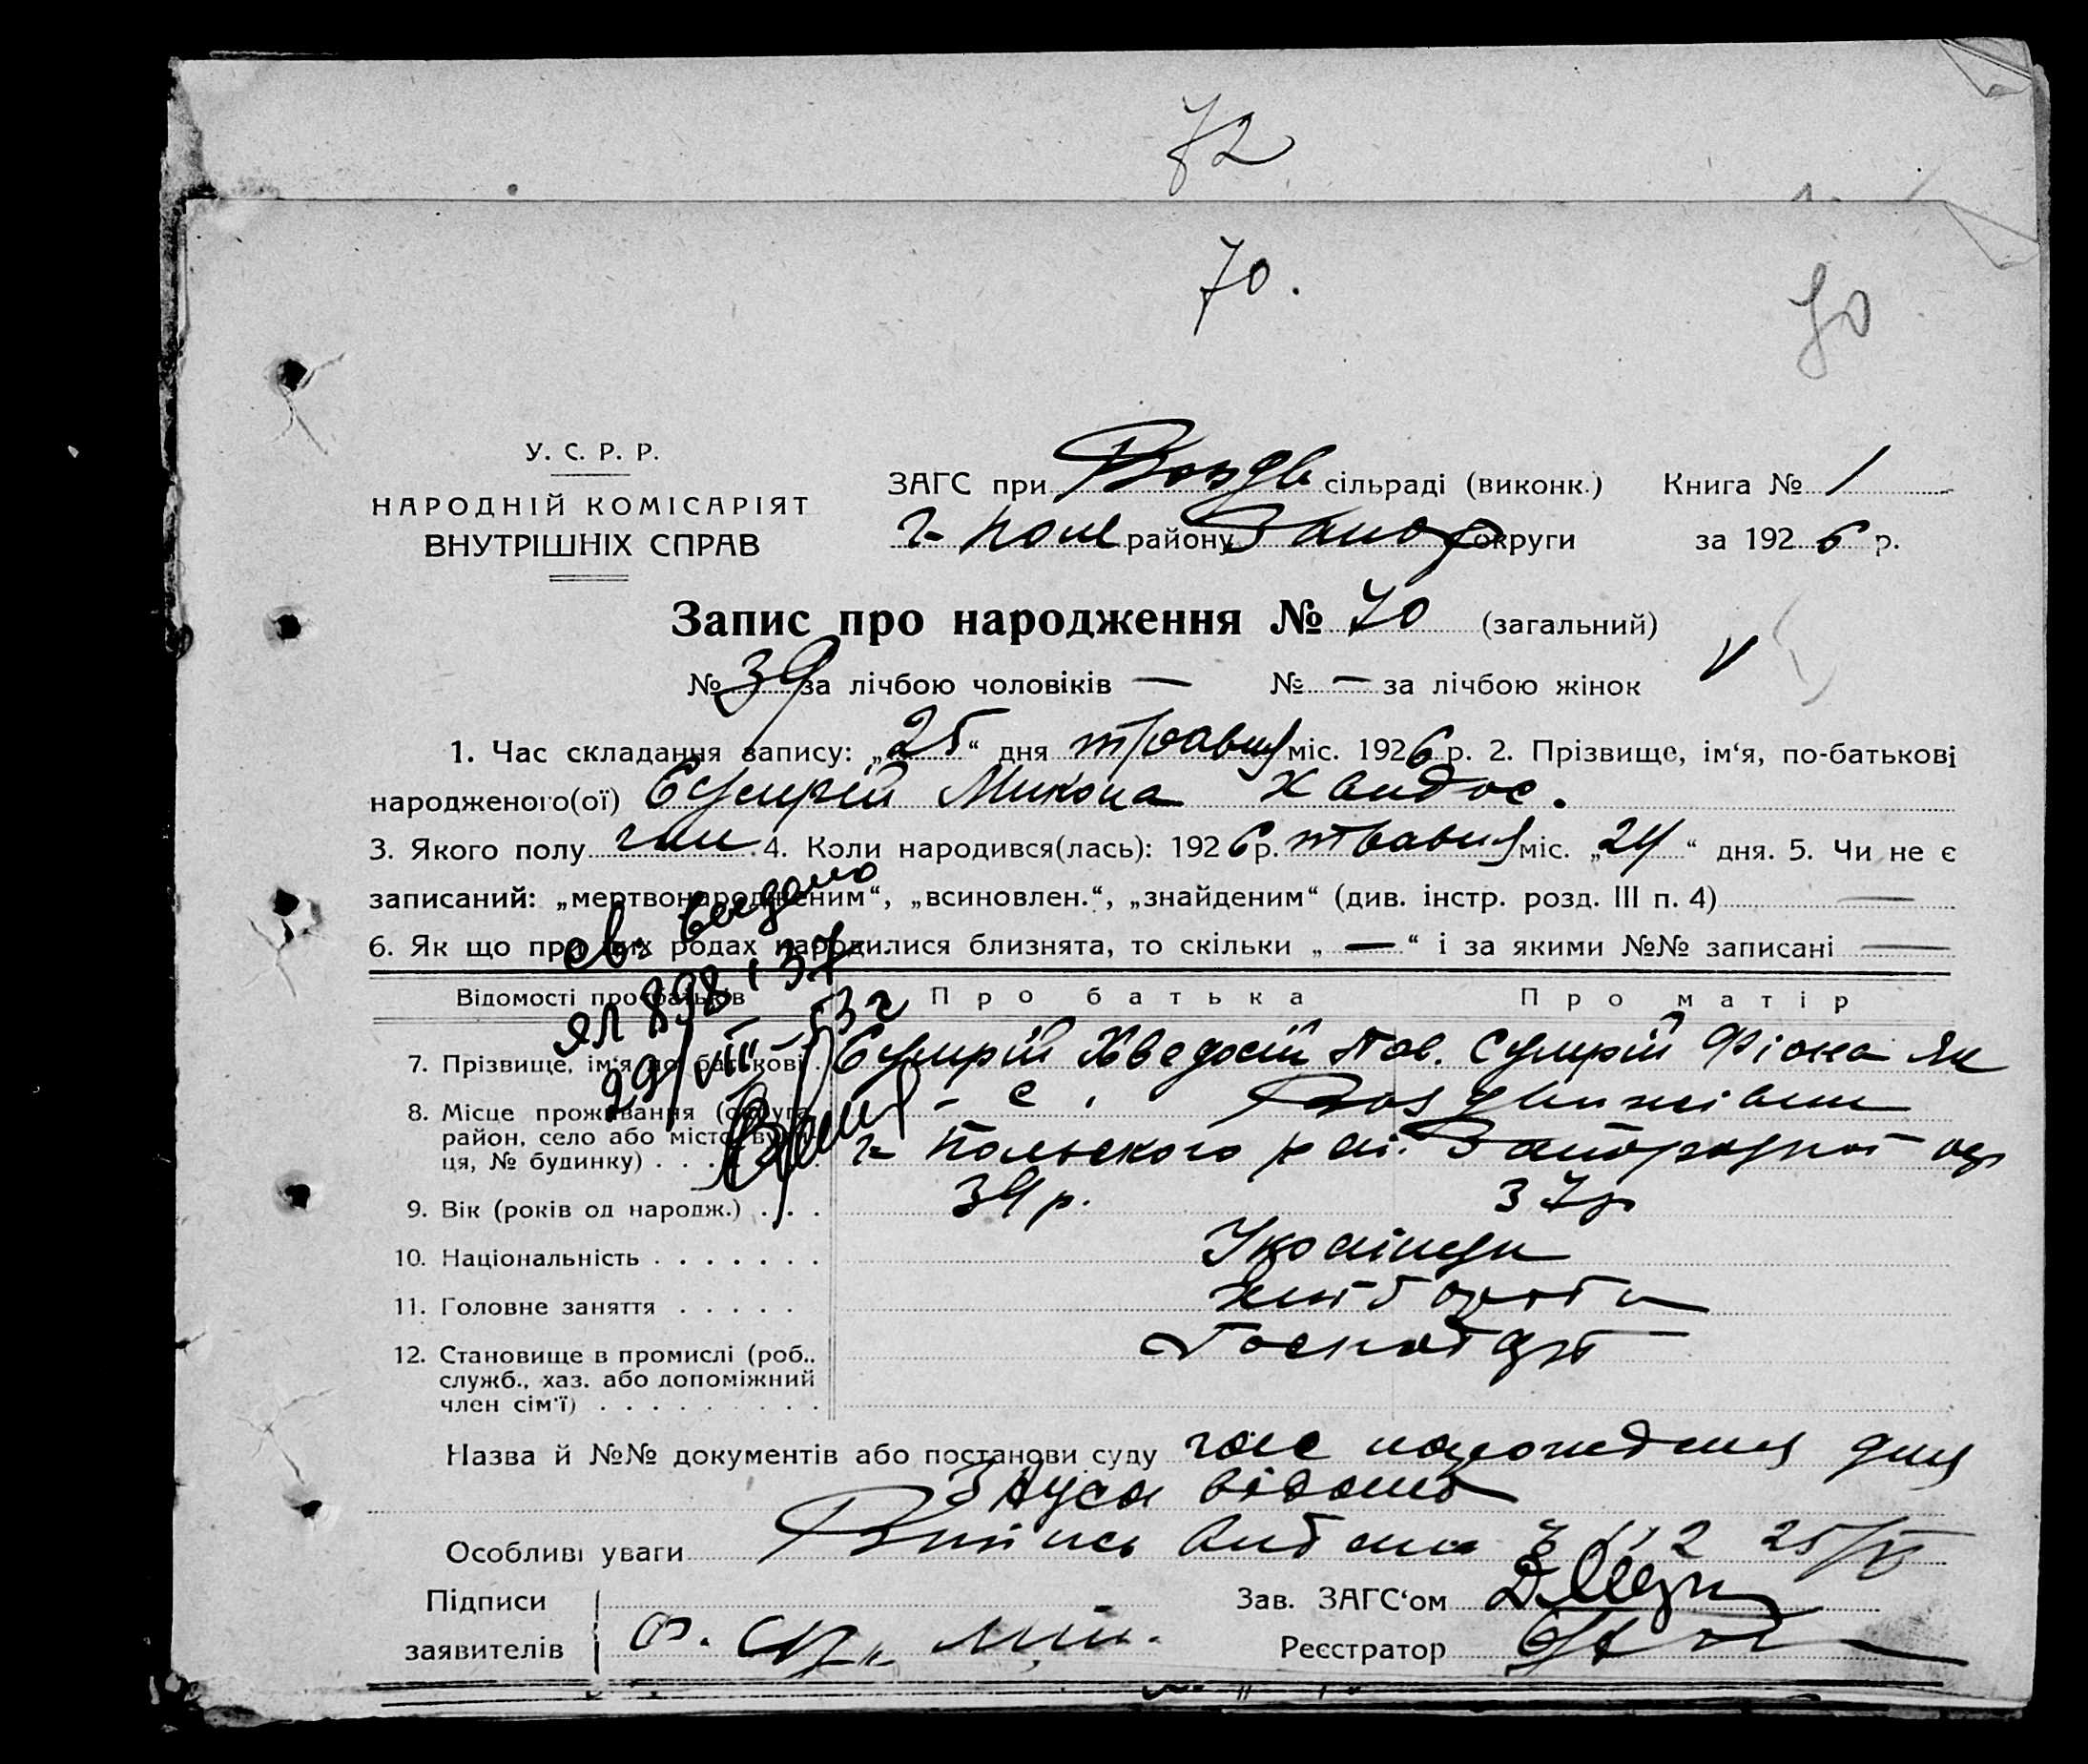 72
70.
70
У. С. Р. Р.
НАРОДНІЙ КОМІСАРІЯТ
ВНУТРІШНІХ СПРАВ
ЗАГС при Воздв сільраді (виконк.) Книга № 1
г- поле району Запор округи за 1926 р.
Запис про народження № 70 (загальний)
№ 39 за лічбою чоловіків — № — за лічбою жінок V
1. Час складання запису: „25“ дня травня міс. 1926 р. 2. Прізвище, ім‘я, по-батькові
народженого(ої) Сумрій Микола Хведос.
3. Якого полу чол 4. Коли народився(лась): 1926 р. травня міс. „24“ дня. 5. Чи не є
записаний: „мертвонародженим“, „всиновлен.“, „знайденим“ (див. інстр. розд. III п. 4) —
6. Як що при цих родах народилися близнята, то скільки „ — “ і за якими №№ записані —
св. выдано
ЯЛ 898137
29/VIII 53 г
Відомості про батьків Про батька Про матір
7. Прізвище, ім‘я по батькові Сумрій Хведосій Пав. Сумрій Фіона Як
8. Місце проживання (округа, район, село або місто, вулиця, № будинку) - с. Воздвижівки
г- польського рай. Запорізької окр
9. Вік (років од народж.) 39 р. 37 р
10. Національність Українци
11. Головне заняття Хліборобы
12. Становище в промислі (роб., служб., хаз. або допоміжний член сім‘ї) Господар
Назва й №№ документів або постанови суду час народження для
Загса відомо
Особливі уваги Випись видана 25/V
Підписи заявителів Ф.
Зав. ЗАГС‘ом
Реєстратор